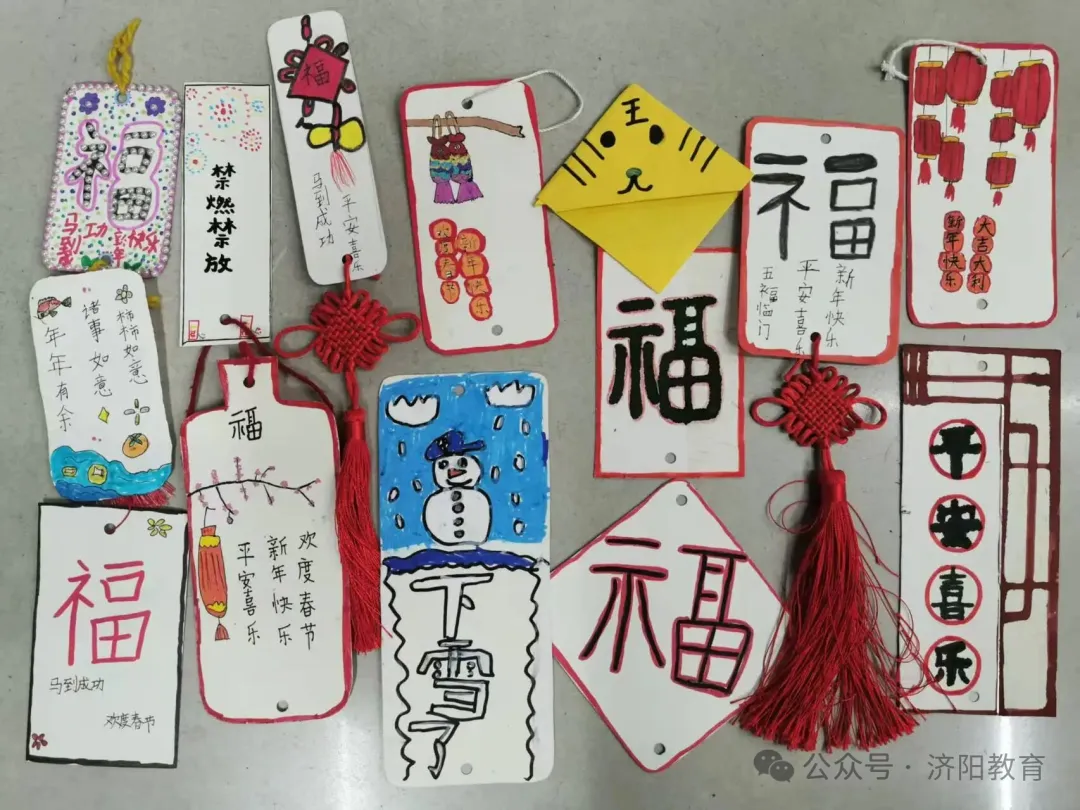 福
禁燃禁放
福
马到成功
平安喜乐
新年快乐
王
福
新年快乐
平安喜乐
五福临门
大吉大利
新年快乐
诸事如意
柿柿如意
年年有余
福
欢度春节
新年快乐
平安喜乐
福
下雪了
福
平安喜乐
福
马到成功
欢度春节
公众号·济阳教育